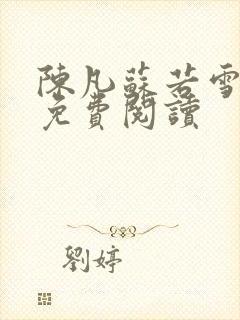 陳凡蘇若雪
免費閱讀
劉婷